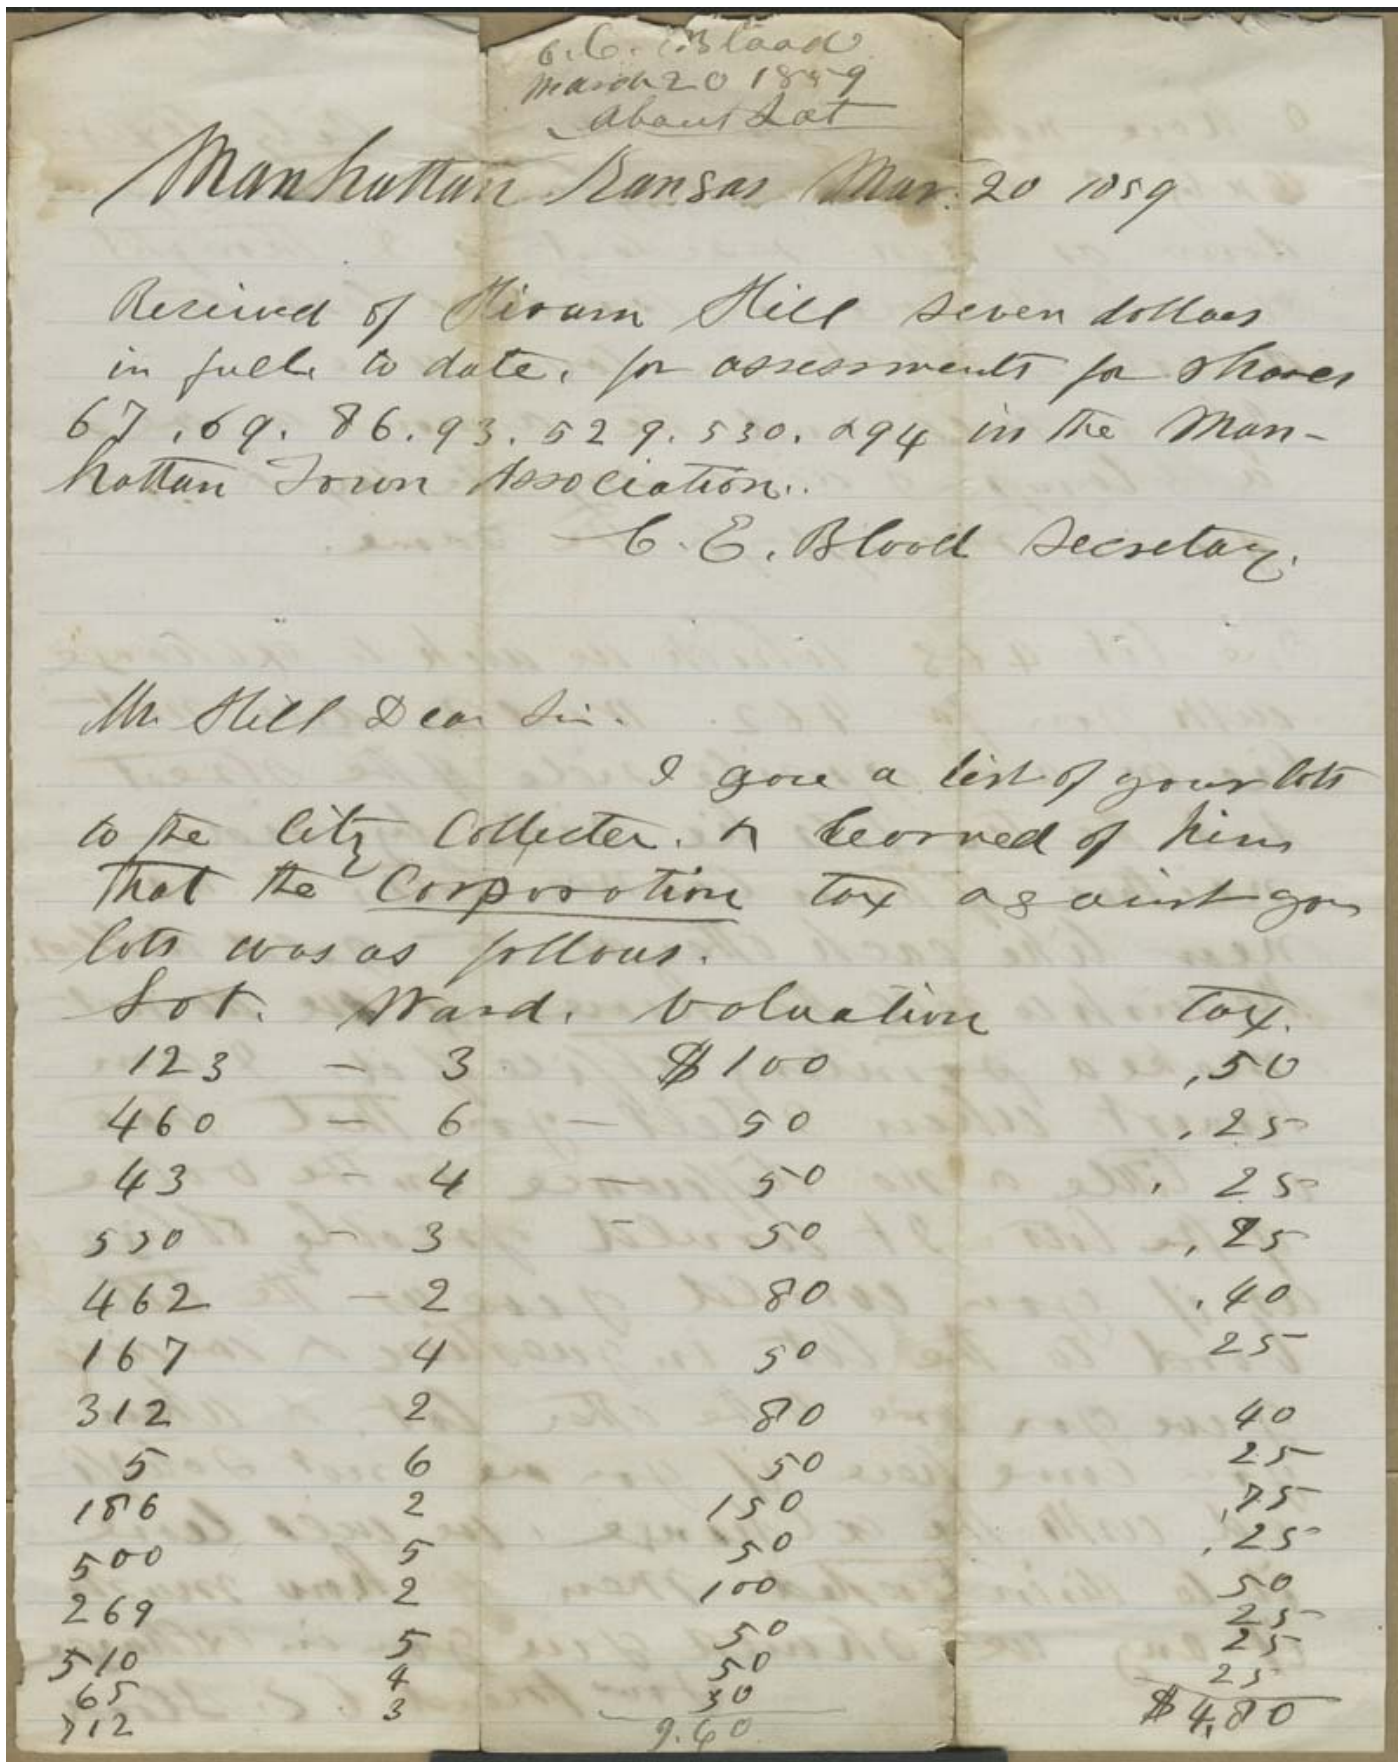 C. C. Blood
March 20 1859
About Lot
Manhattan Kansas Mar. 20 1859
Recieved of Hiram Hill seven dollars
in full to date, for assessments for shares
67. 69. 86. 93. 529. 530. 294 in the Man-
hattan Town Association.
C. E. Blood Secretary.
Mr. Hill Dear Sir.
I gave a list of your lots
to the City Collecter. & learned of him
that the Corporation tax against your
lots was as follows.
Lot. Ward. Valuation Tax.
123 - 3 $100 .50
460 - 6 - 50 .25
43 - 4 - 50 . 25
530 - 3 - 50 .25
462 - 2 80 .40
167 4 50 25
312 2 80 40
5 6 50 25
186 2 150 .75
500 5 50 .25
269 2 100 50
510 5 50 25
65 4 50 25
712 3 50 25
9.60 $4,80